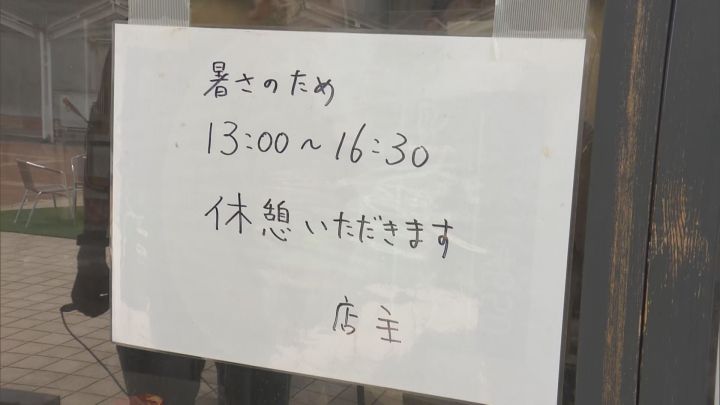 暑さのため
13:00～16:30
休憩いただきます
店主